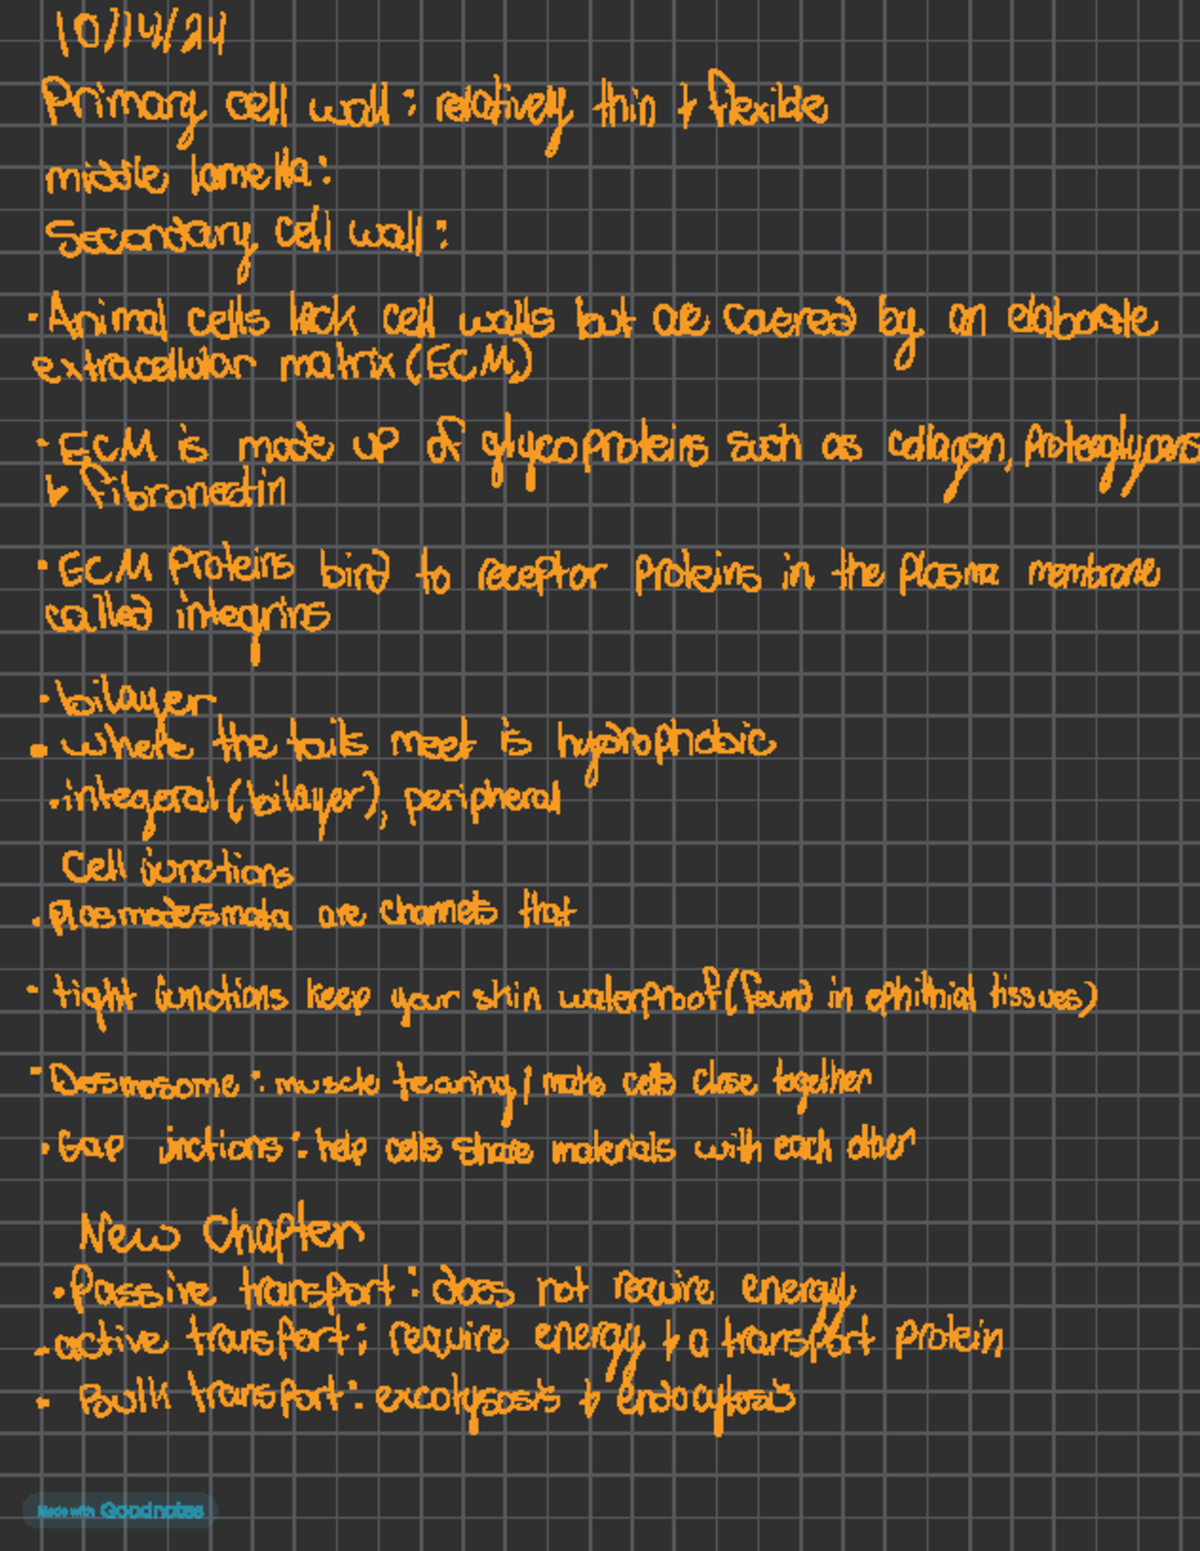 10/14/24
Primary cell wall: relatively thin + flexible
middle lamella:
Secondary cell wall:
· Animal cells lack cell walls but are covered by an elaborate
extracellular matrix (ECM)
· ECM is made up of glycoproteins such as collagen, proteoglycans
+ fibronectin
· ECM Proteins bind to receptor proteins in the plasma membrane
called integrins
· bilayer
· where the tails meet is hydrophobic
· integeral (bilayer), peripheral
Cell junctions
· Plasmodesmata are channels that
· tight junctions keep your skin waterproof (found in ephithial tissues)
· Desmosome: muscle tearing / make cells close together
· Gap jnctions: help cells share materials with each other
New Chapter
· Passive transport: does not require energy
· active transport: require energy + a transport protein
· Bulk transport: excotysosis + endocytosis
Made with Goodnotes